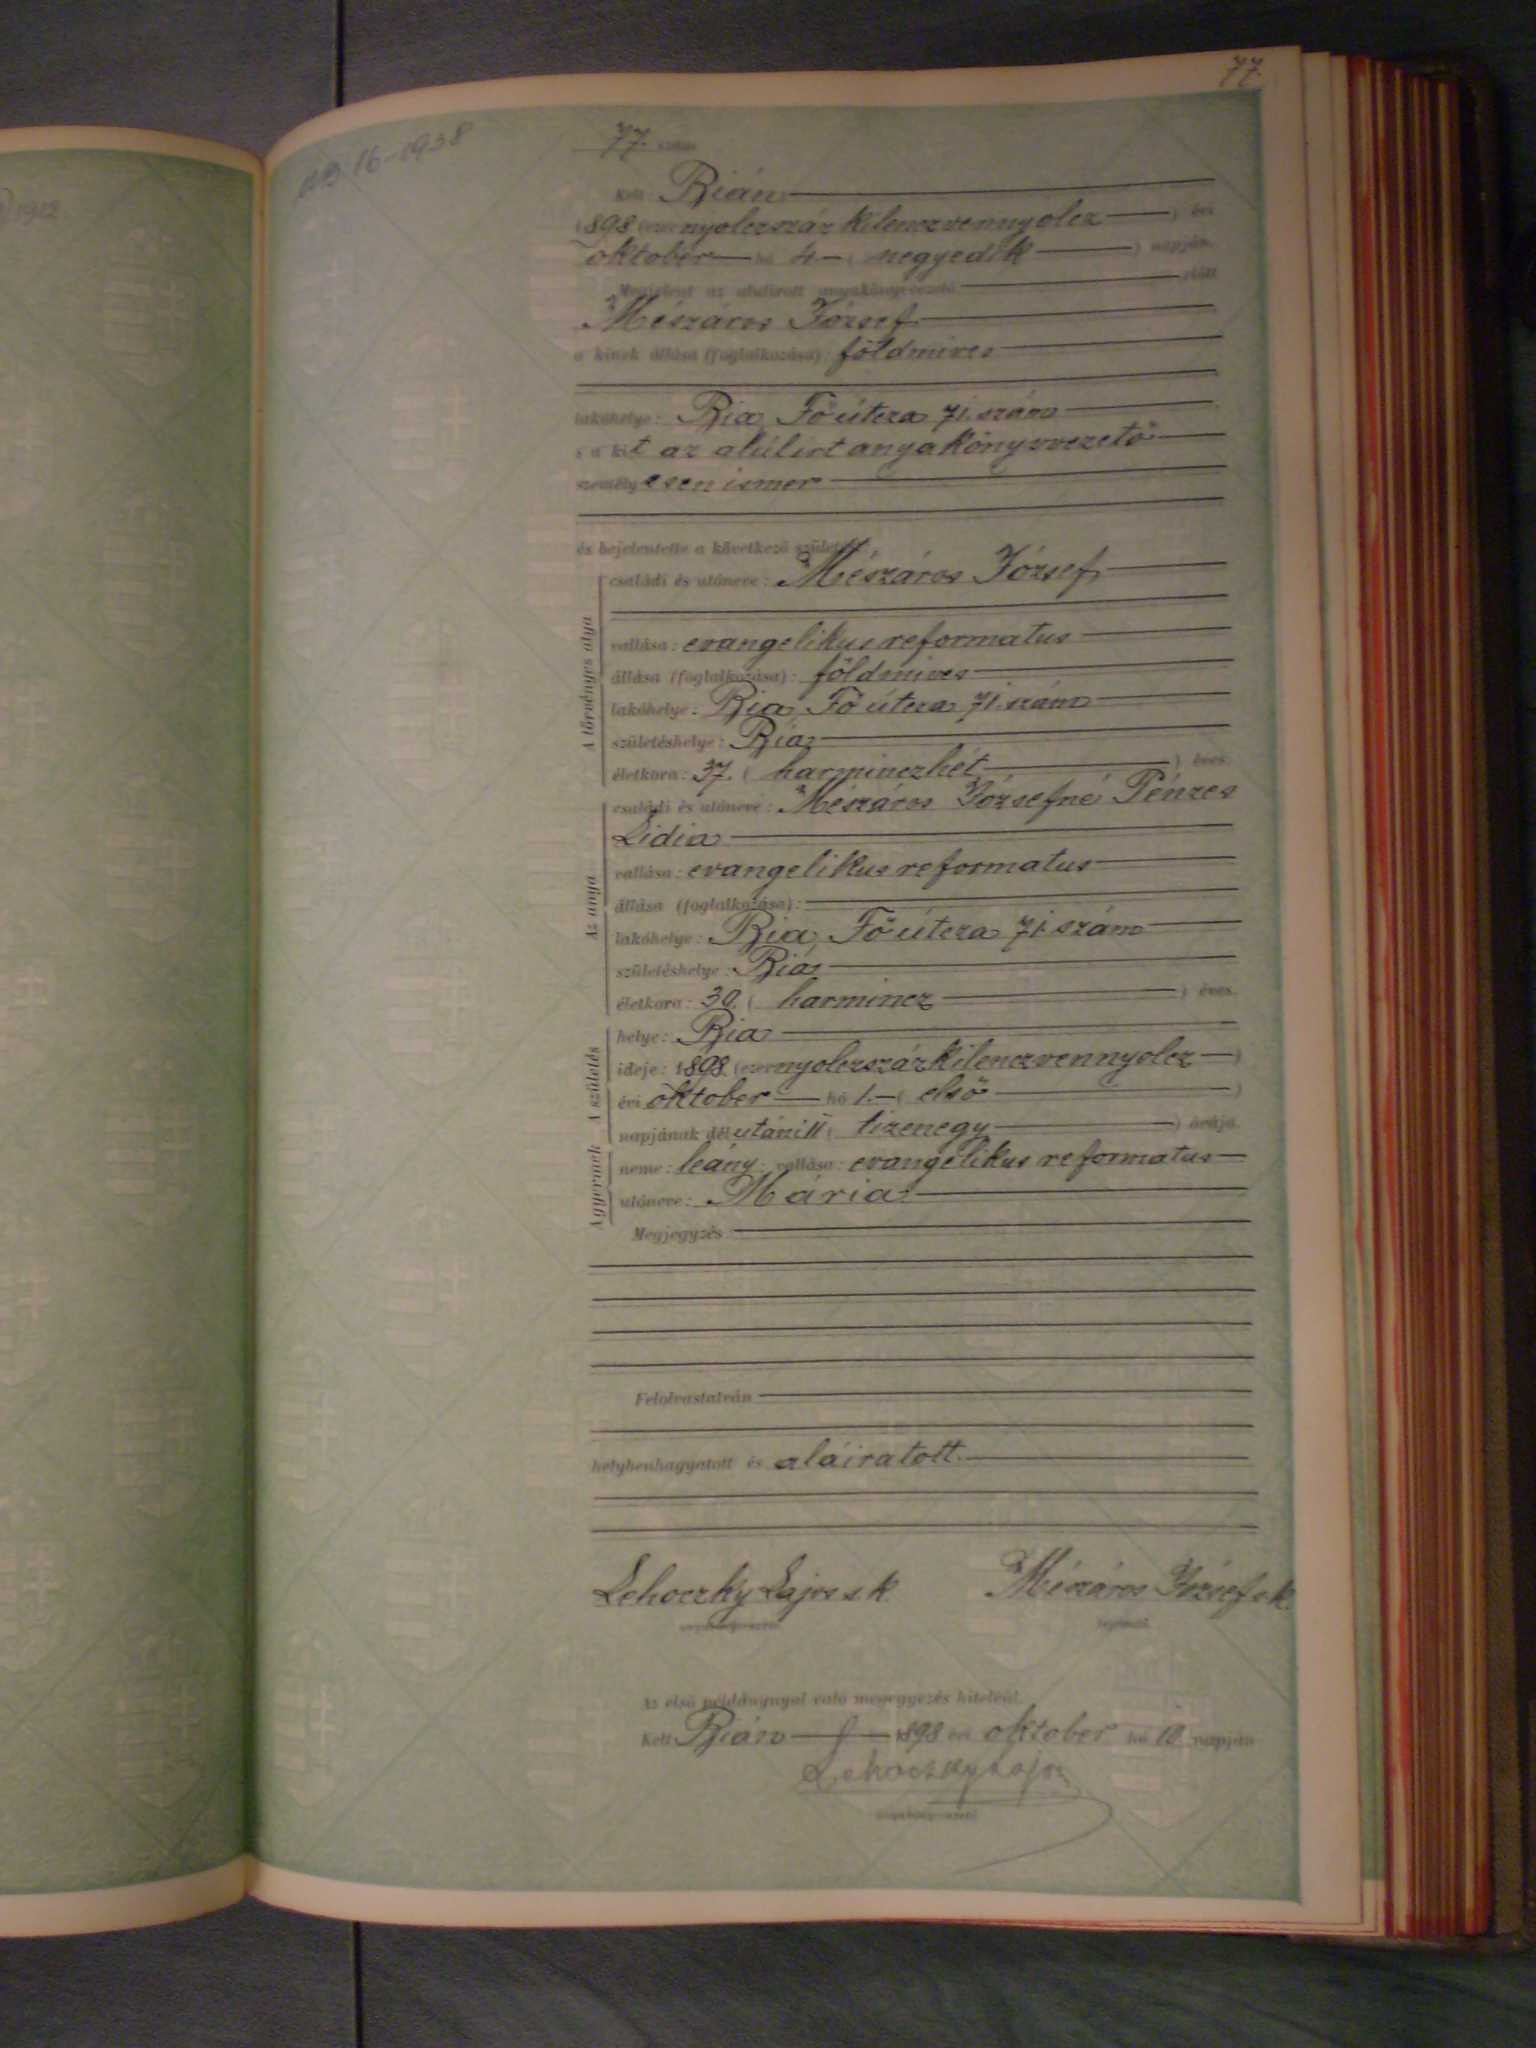 77.
1912
16-1938
77. szám
Kelt: Bián
1898 (ezernyolczszáz kilenczvennyolcz) évi
október hó 4 (negyedik) napján.
Megjelent az alulirott anyakönyvvezető előtt
Mészáros József
a kinek állása (foglalkozása): földmives
lakóhelye: Bia Fő útcza 71. szám
s a kit az alúlirt anyakönyvvezető
személyesen ismer
és bejelentette a következő születést:
A törvényes atya
családi és utóneve: Mészáros József
vallása: evangelikus reformatus
állása (foglalkozása): földmives
lakóhelye: Bia, Fő útcza 71. szám
születéshelye: Bia
életkora: 37. (harminczhét) éves.
Az anya
családi és utóneve: Mészáros Józsefné Pénzes
Lidia
vallása: evangelikus reformatus
állása (foglalkozása):
lakóhelye: Bia, Fő útcza 71. szám
születéshelye: Bia
életkora: 30. (harmincz) éves.
A születés
helye: Bia
ideje: 1898. (ezernyolczszázkilenczvennyolcz)
évi október hó 1. (első)
napjának délutáni 11 (tizenegy) órája.
A gyermek
neme: leány; vallása: evangelikus reformatus
utóneve: Mária
Megjegyzés
Felolvastatván
helybenhagyatott és aláiratott.
Lehoczky Lajos s. k. Mészáros József s. k.
anyakönyvvezető. bejelentő.
Az első példánynyal való megegyezés hiteléül.
Kelt Bián 1898 évi október hó 10 napján
Lehoczky Lajos
anyakönyvvezető